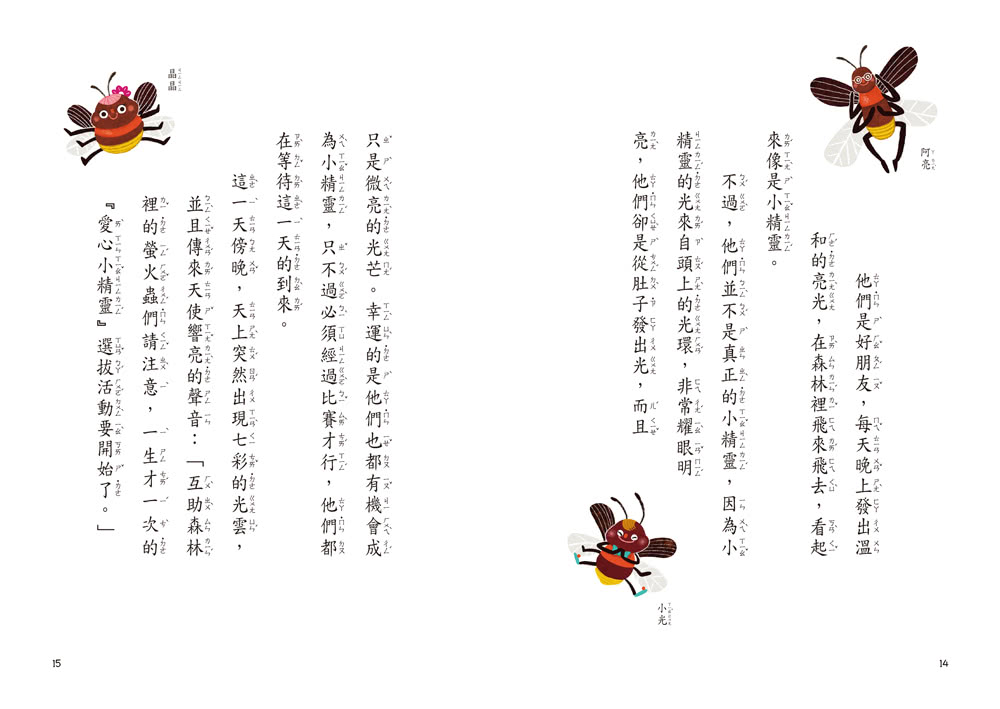 阿亮
他們是好朋友，每天晚上發出溫
和的亮光，在森林裡飛來飛去，看起
來像是小精靈。
不過，他們並不是真正的小精靈，因為小
精靈的光來自頭上的光環，非常耀眼明
亮，他們卻是從肚子發出光，而且
小光
14
只是微亮的光芒。幸運的是他們也都有機會成
為小精靈，只不過必須經過比賽才行，他們都
在等待這一天的到來。
這一天傍晚，天上突然出現七彩的光雲，
並且傳來天使響亮的聲音：「互助森林
裡的螢火蟲們請注意，一生才一次的
『愛心小精靈』選拔活動要開始了。」
晶晶
15